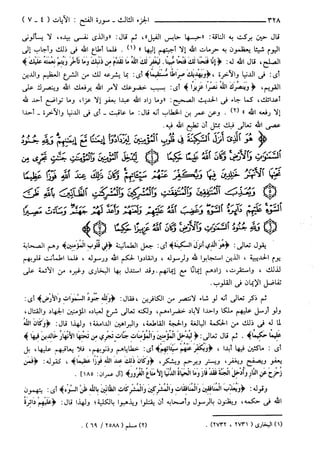 ٣٢٨ الجزء الثالث ـ سورة الفتح : الآيات ( ٤ ـ ٧ )
قال حين بركت به الناقة: «حبسها حابس الفيل»، ثم قال: «والذي نفسي بيده، لا يسألوني
اليوم شيئا يعظمون به حرمات الله إلا أجبتهم إليها» (١). فلما أطاع الله في ذلك وأجاب إلى
الصلح، قال الله له: ﴿إِنَّا فَتَحْنَا لَكَ فَتْحًا مُّبِينًا لِّيَغْفِرَ لَكَ اللَّهُ مَا تَقَدَّمَ مِن ذَنبِكَ وَمَا تَأَخَّرَ وَيُتِمَّ نِعْمَتَهُ عَلَيْكَ﴾
أي: في الدنيا والآخرة، ﴿وَيَهْدِيَكَ صِرَاطًا مُّسْتَقِيمًا﴾ أي: بما يشرعه لك من الشرع العظيم والدين
القويم، ﴿وَيَنصُرَكَ اللَّهُ نَصْرًا عَزِيزًا﴾ أي: بسبب خضوعك لأمر الله يرفعك الله وينصرك على
أعدائك، كما جاء في الحديث الصحيح: «وما زاد الله عبدا بعفو إلا عزا، وما تواضع أحد لله
إلا رفعه الله» (٢). وعن عمر بن الخطاب أنه قال: ما عاقبت ـ أي في الدنيا والآخرة ـ أحدا
عصى الله تعالى فيك بمثل أن تطيع الله فيه.
هُوَ الَّذِي أَنزَلَ السَّكِينَةَ فِي قُلُوبِ الْمُؤْمِنِينَ لِيَزْدَادُوا إِيمَانًا مَّعَ إِيمَانِهِمْ وَلِلَّهِ جُنُودُ
السَّمَاوَاتِ وَالْأَرْضِ وَكَانَ اللَّهُ عَلِيمًا حَكِيمًا ۝ لِّيُدْخِلَ الْمُؤْمِنِينَ وَالْمُؤْمِنَاتِ جَنَّاتٍ تَجْرِي مِن
تَحْتِهَا الْأَنْهَارُ خَالِدِينَ فِيهَا وَيُكَفِّرَ عَنْهُمْ سَيِّئَاتِهِمْ وَكَانَ ذَٰلِكَ عِندَ اللَّهِ فَوْزًا عَظِيمًا ۝
وَيُعَذِّبَ الْمُنَافِقِينَ وَالْمُنَافِقَاتِ وَالْمُشْرِكِينَ وَالْمُشْرِكَاتِ الظَّانِّينَ بِاللَّهِ ظَنَّ السَّوْءِ عَلَيْهِمْ دَائِرَةُ
السَّوْءِ وَغَضِبَ اللَّهُ عَلَيْهِمْ وَلَعَنَهُمْ وَأَعَدَّ لَهُمْ جَهَنَّمَ وَسَاءَتْ مَصِيرًا ۝ وَلِلَّهِ جُنُودُ السَّمَاوَاتِ
وَالْأَرْضِ وَكَانَ اللَّهُ عَزِيزًا حَكِيمًا ۝
يقول تعالى: ﴿هُوَ الَّذِي أَنزَلَ السَّكِينَةَ﴾ أي: جعل الطمأنينة ﴿فِي قُلُوبِ الْمُؤْمِنِينَ﴾ وهم الصحابة
يوم الحديبية، الذين استجابوا لله ولرسوله، وانقادوا لحكم الله ورسوله، فلما اطمأنت قلوبهم
لذلك، واستقرت، زادهم إيمانًا مع إيمانهم. وقد استدل بها البخاري وغيره من الأئمة على
تفاضل الإيمان في القلوب.
ثم ذكر تعالى أنه لو شاء لانتصر من الكافرين، فقال: ﴿وَلِلَّهِ جُنُودُ السَّمَاوَاتِ وَالْأَرْضِ﴾ أي:
ولو أرسل عليهم ملكا واحدا لأباد خضراءهم، ولكنه تعالى شرع لعباده المؤمنين الجهاد والقتال،
لما له في ذلك من الحكمة البالغة والحجة القاطعة، والبراهين الدامغة؛ ولهذا قال: ﴿وَكَانَ اللَّهُ
عَلِيمًا حَكِيمًا﴾. ثم قال تعالى: ﴿لِّيُدْخِلَ الْمُؤْمِنِينَ وَالْمُؤْمِنَاتِ جَنَّاتٍ تَجْرِي مِن تَحْتِهَا الْأَنْهَارُ خَالِدِينَ فِيهَا﴾
أي: ماكثين فيها أبدا، ﴿وَيُكَفِّرَ عَنْهُمْ سَيِّئَاتِهِمْ﴾ أي: خطاياهم وذنوبهم، فلا يعاقبهم عليها، بل
يعفو ويصفح ويغفر، ويستر ويرحم ويشكر، ﴿وَكَانَ ذَٰلِكَ عِندَ اللَّهِ فَوْزًا عَظِيمًا﴾، كقوله: ﴿فَمَن
زُحْزِحَ عَنِ النَّارِ وَأُدْخِلَ الْجَنَّةَ فَقَدْ فَازَ وَمَا الْحَيَاةُ الدُّنْيَا إِلَّا مَتَاعُ الْغُرُورِ﴾ [آل عمران: ١٨٥].
وقوله: ﴿وَيُعَذِّبَ الْمُنَافِقِينَ وَالْمُنَافِقَاتِ وَالْمُشْرِكِينَ وَالْمُشْرِكَاتِ الظَّانِّينَ بِاللَّهِ ظَنَّ السَّوْءِ﴾ أي: يتهمون
الله في حكمه، ويظنون بالرسول وأصحابه أن يقتلوا ويذهبوا بالكلية؛ ولهذا قال: ﴿عَلَيْهِمْ دَائِرَةُ
(١) البخاري (٢٧٣١ ، ٢٧٣٢). (٢) مسلم (٢٥٨٨ / ٦٩).